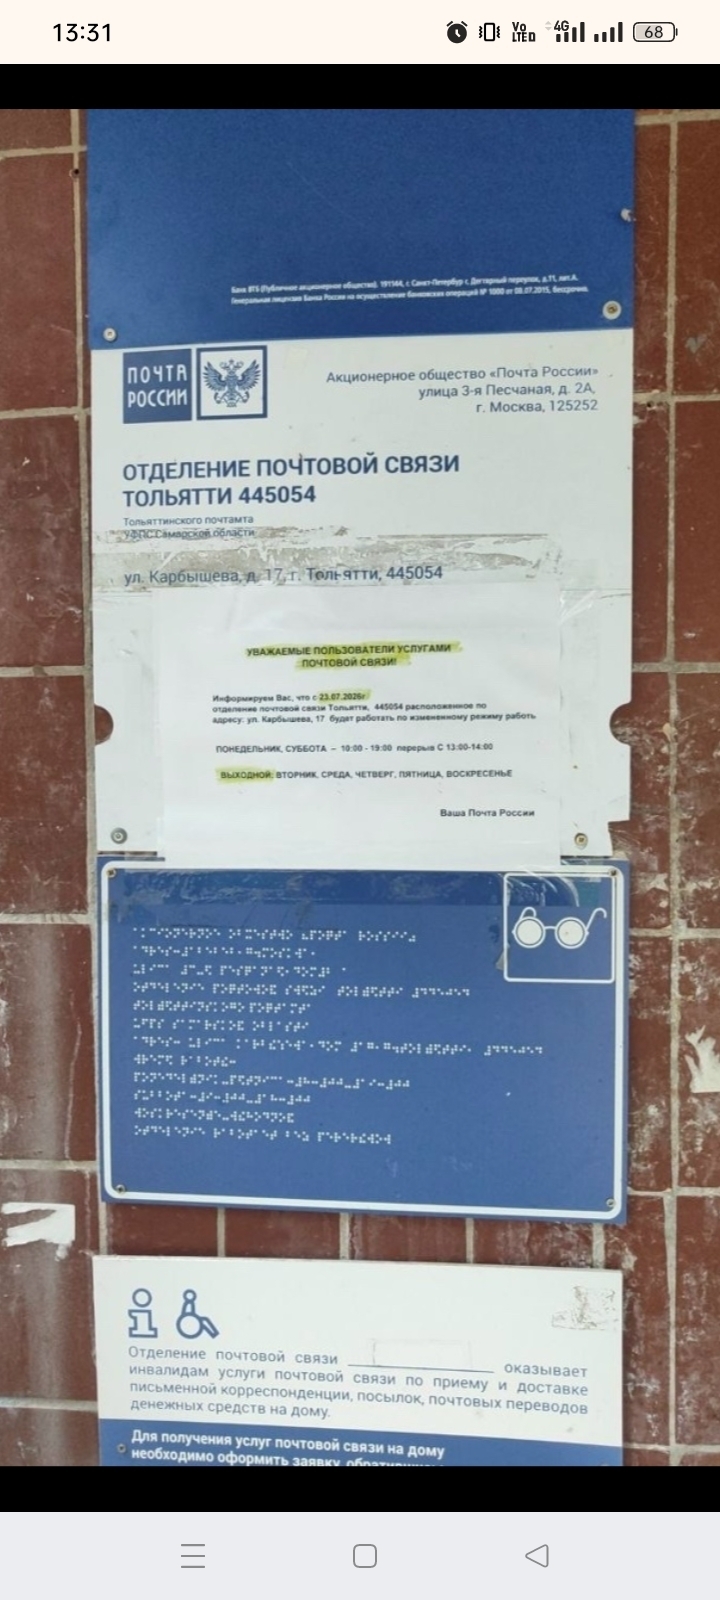 13:31
Vo
LTE
4G
68
Банк ВТБ (Публичное акционерное общество). 191144, г. Санкт-Петербург г, Дегтярный переулок, д.11, лит.А.
Генеральная лицензия Банка России на осуществление банковских операций № 1000 от 08.07.2015, бессрочно.
ПОЧТА
РОССИИ
Акционерное общество «Почта России»
улица 3-я Песчаная, д. 2А,
г. Москва, 125252
ОТДЕЛЕНИЕ ПОЧТОВОЙ СВЯЗИ
ТОЛЬЯТТИ 445054
Тольяттинского почтамта
УФПС Самарской области
ул. Карбышева, д. 17, г. Тольятти, 445054
УВАЖАЕМЫЕ ПОЛЬЗОВАТЕЛИ УСЛУГАМИ
ПОЧТОВОЙ СВЯЗИ!
Информируем Вас, что с 23.07.2026г
отделение почтовой связи Тольятти, 445054 расположенное по
адресу: ул. Карбышева, 17 будет работать по измененному режиму работы
ПОНЕДЕЛЬНИК, СУББОТА – 10:00 - 19:00 перерыв С 13:00-14:00
ВЫХОДНОЙ: ВТОРНИК, СРЕДА, ЧЕТВЕРГ, ПЯТНИЦА, ВОСКРЕСЕНЬЕ
Ваша Почта России
Отделение почтовой связи оказывает
инвалидам услуги почтовой связи по приему и доставке
письменной корреспонденции, посылок, почтовых переводов
денежных средств на дому.
Для получения услуг почтовой связи на дому
необходимо оформить заявку,